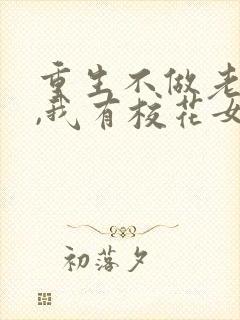 重生不做老
,我有校花女
初落夕